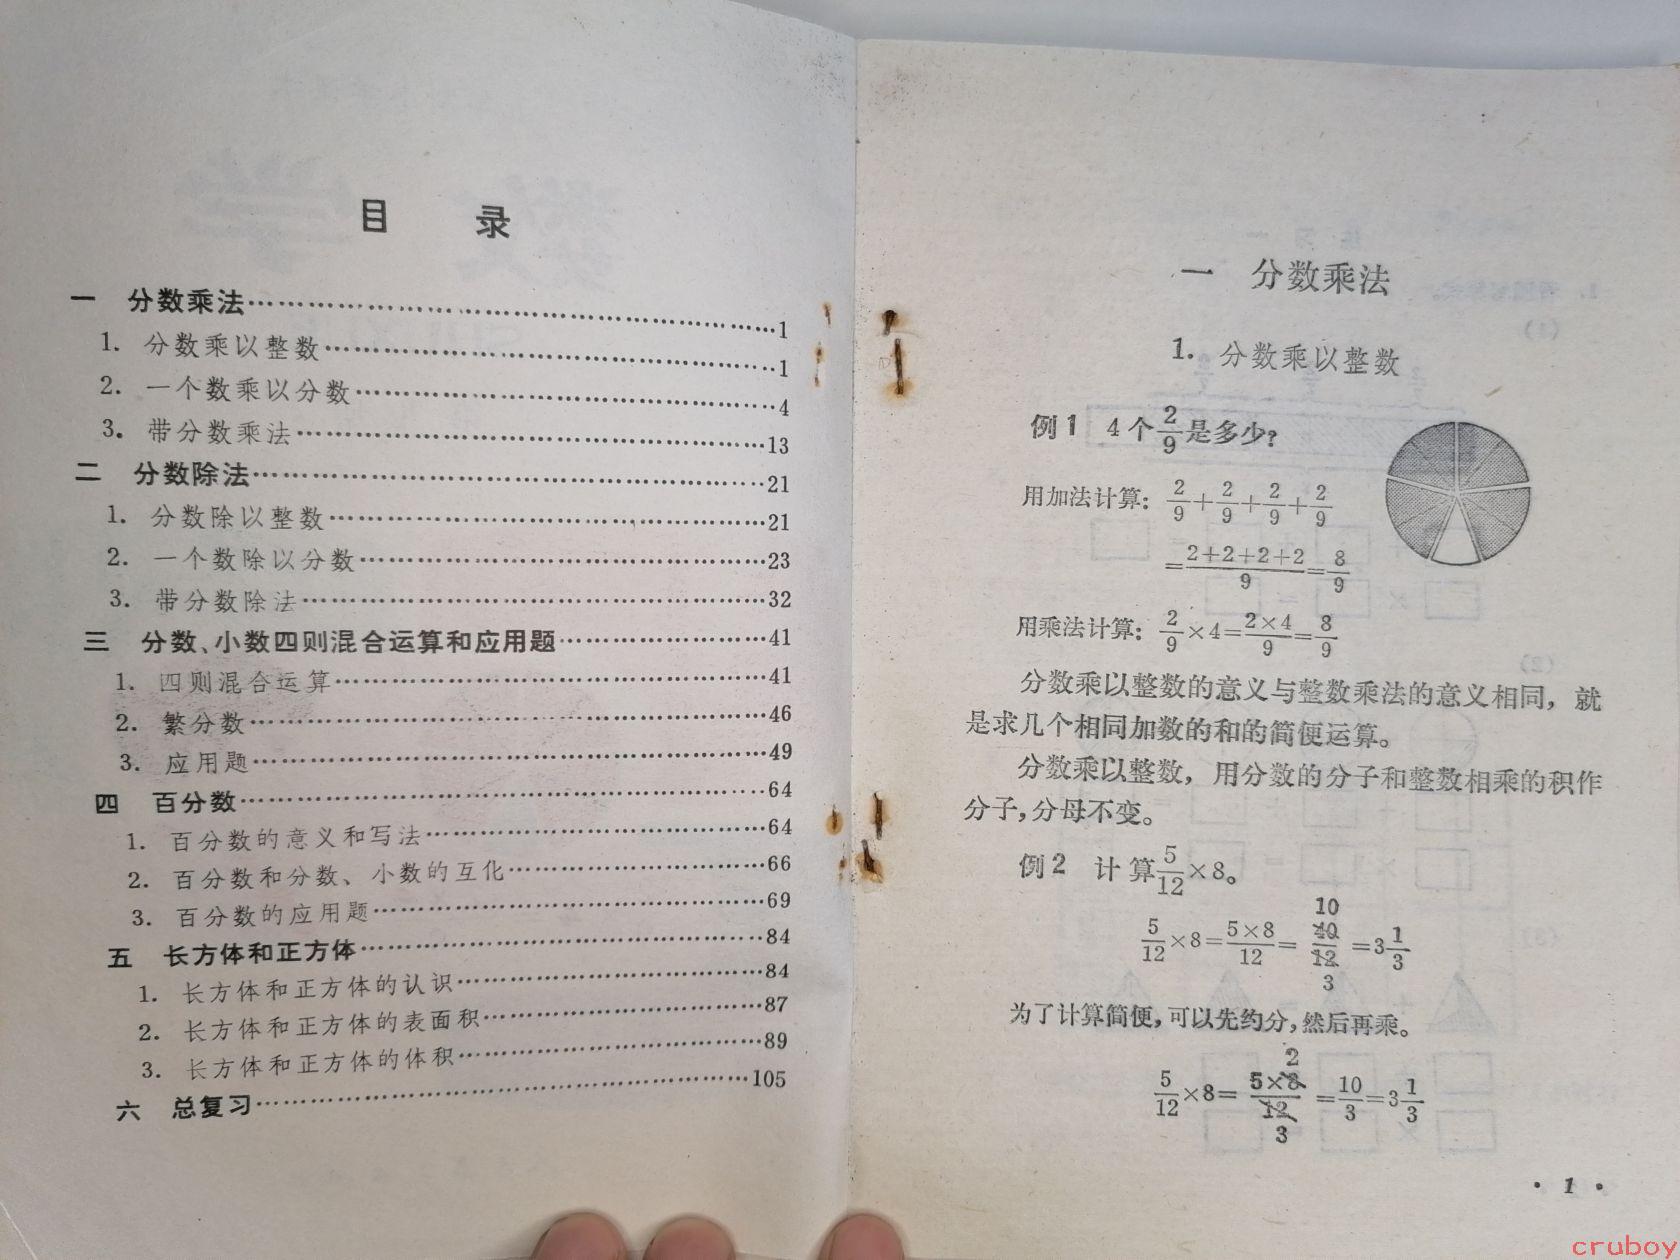 目 录
一 分数乘法……………………………………1
1. 分数乘以整数……………………………………1
2. 一个数乘以分数……………………………………4
3. 带分数乘法……………………………………13
二 分数除法……………………………………21
1. 分数除以整数……………………………………21
2. 一个数除以分数……………………………………23
3. 带分数除法……………………………………32
三 分数、小数四则混合运算和应用题……………………41
1. 四则混合运算……………………………………41
2. 繁分数……………………………………46
3. 应用题……………………………………49
四 百分数……………………………………64
1. 百分数的意义和写法……………………………………64
2. 百分数和分数、小数的互化……………………………66
3. 百分数的应用题……………………………………69
五 长方体和正方体……………………………………84
1. 长方体和正方体的认识……………………………………84
2. 长方体和正方体的表面积……………………………………87
3. 长方体和正方体的体积……………………………………89
六 总复习……………………………………105
一 分数乘法
1. 分数乘以整数
例1 4个2/9是多少?
用加法计算: 2/9+2/9+2/9+2/9
=(2+2+2+2)/9=8/9
用乘法计算: 2/9×4=(2×4)/9=8/9
分数乘以整数的意义与整数乘法的意义相同，就
是求几个相同加数的和的简便运算。
分数乘以整数，用分数的分子和整数相乘的积作
分子，分母不变。
例2 计算5/12×8。
10
5/12×8=(5×8)/12=40/12=3 1/3
3
为了计算简便，可以先约分，然后再乘。
2
5/12×8=(5×8)/12=10/3=3 1/3
3
· 1 ·
cruboy